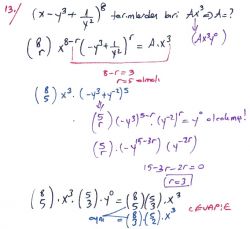 13.) (x - y³ + 1/y²)⁸ terimlerden biri Ax³ ⇒ A = ?
(Ax³y⁰)
(8 r) x⁸⁻ʳ (-y³ + 1/y²)ʳ = A.x³
8-r = 3
r = 5 olmalı
(8 5) x³. (-y³ + y⁻²)⁵
(5 r) (-y³)⁵⁻ʳ. (y⁻²)ʳ = y⁰ olmalı
(5 r). (-y¹⁵⁻³ʳ) (y⁻²ʳ)
15-3r-2r = 0
r = 3
(8 5). x³. (5 3). y⁰ = (8 5)(5 3). x³
aynı = (8 3).(5 2). x³
CEVAP: E